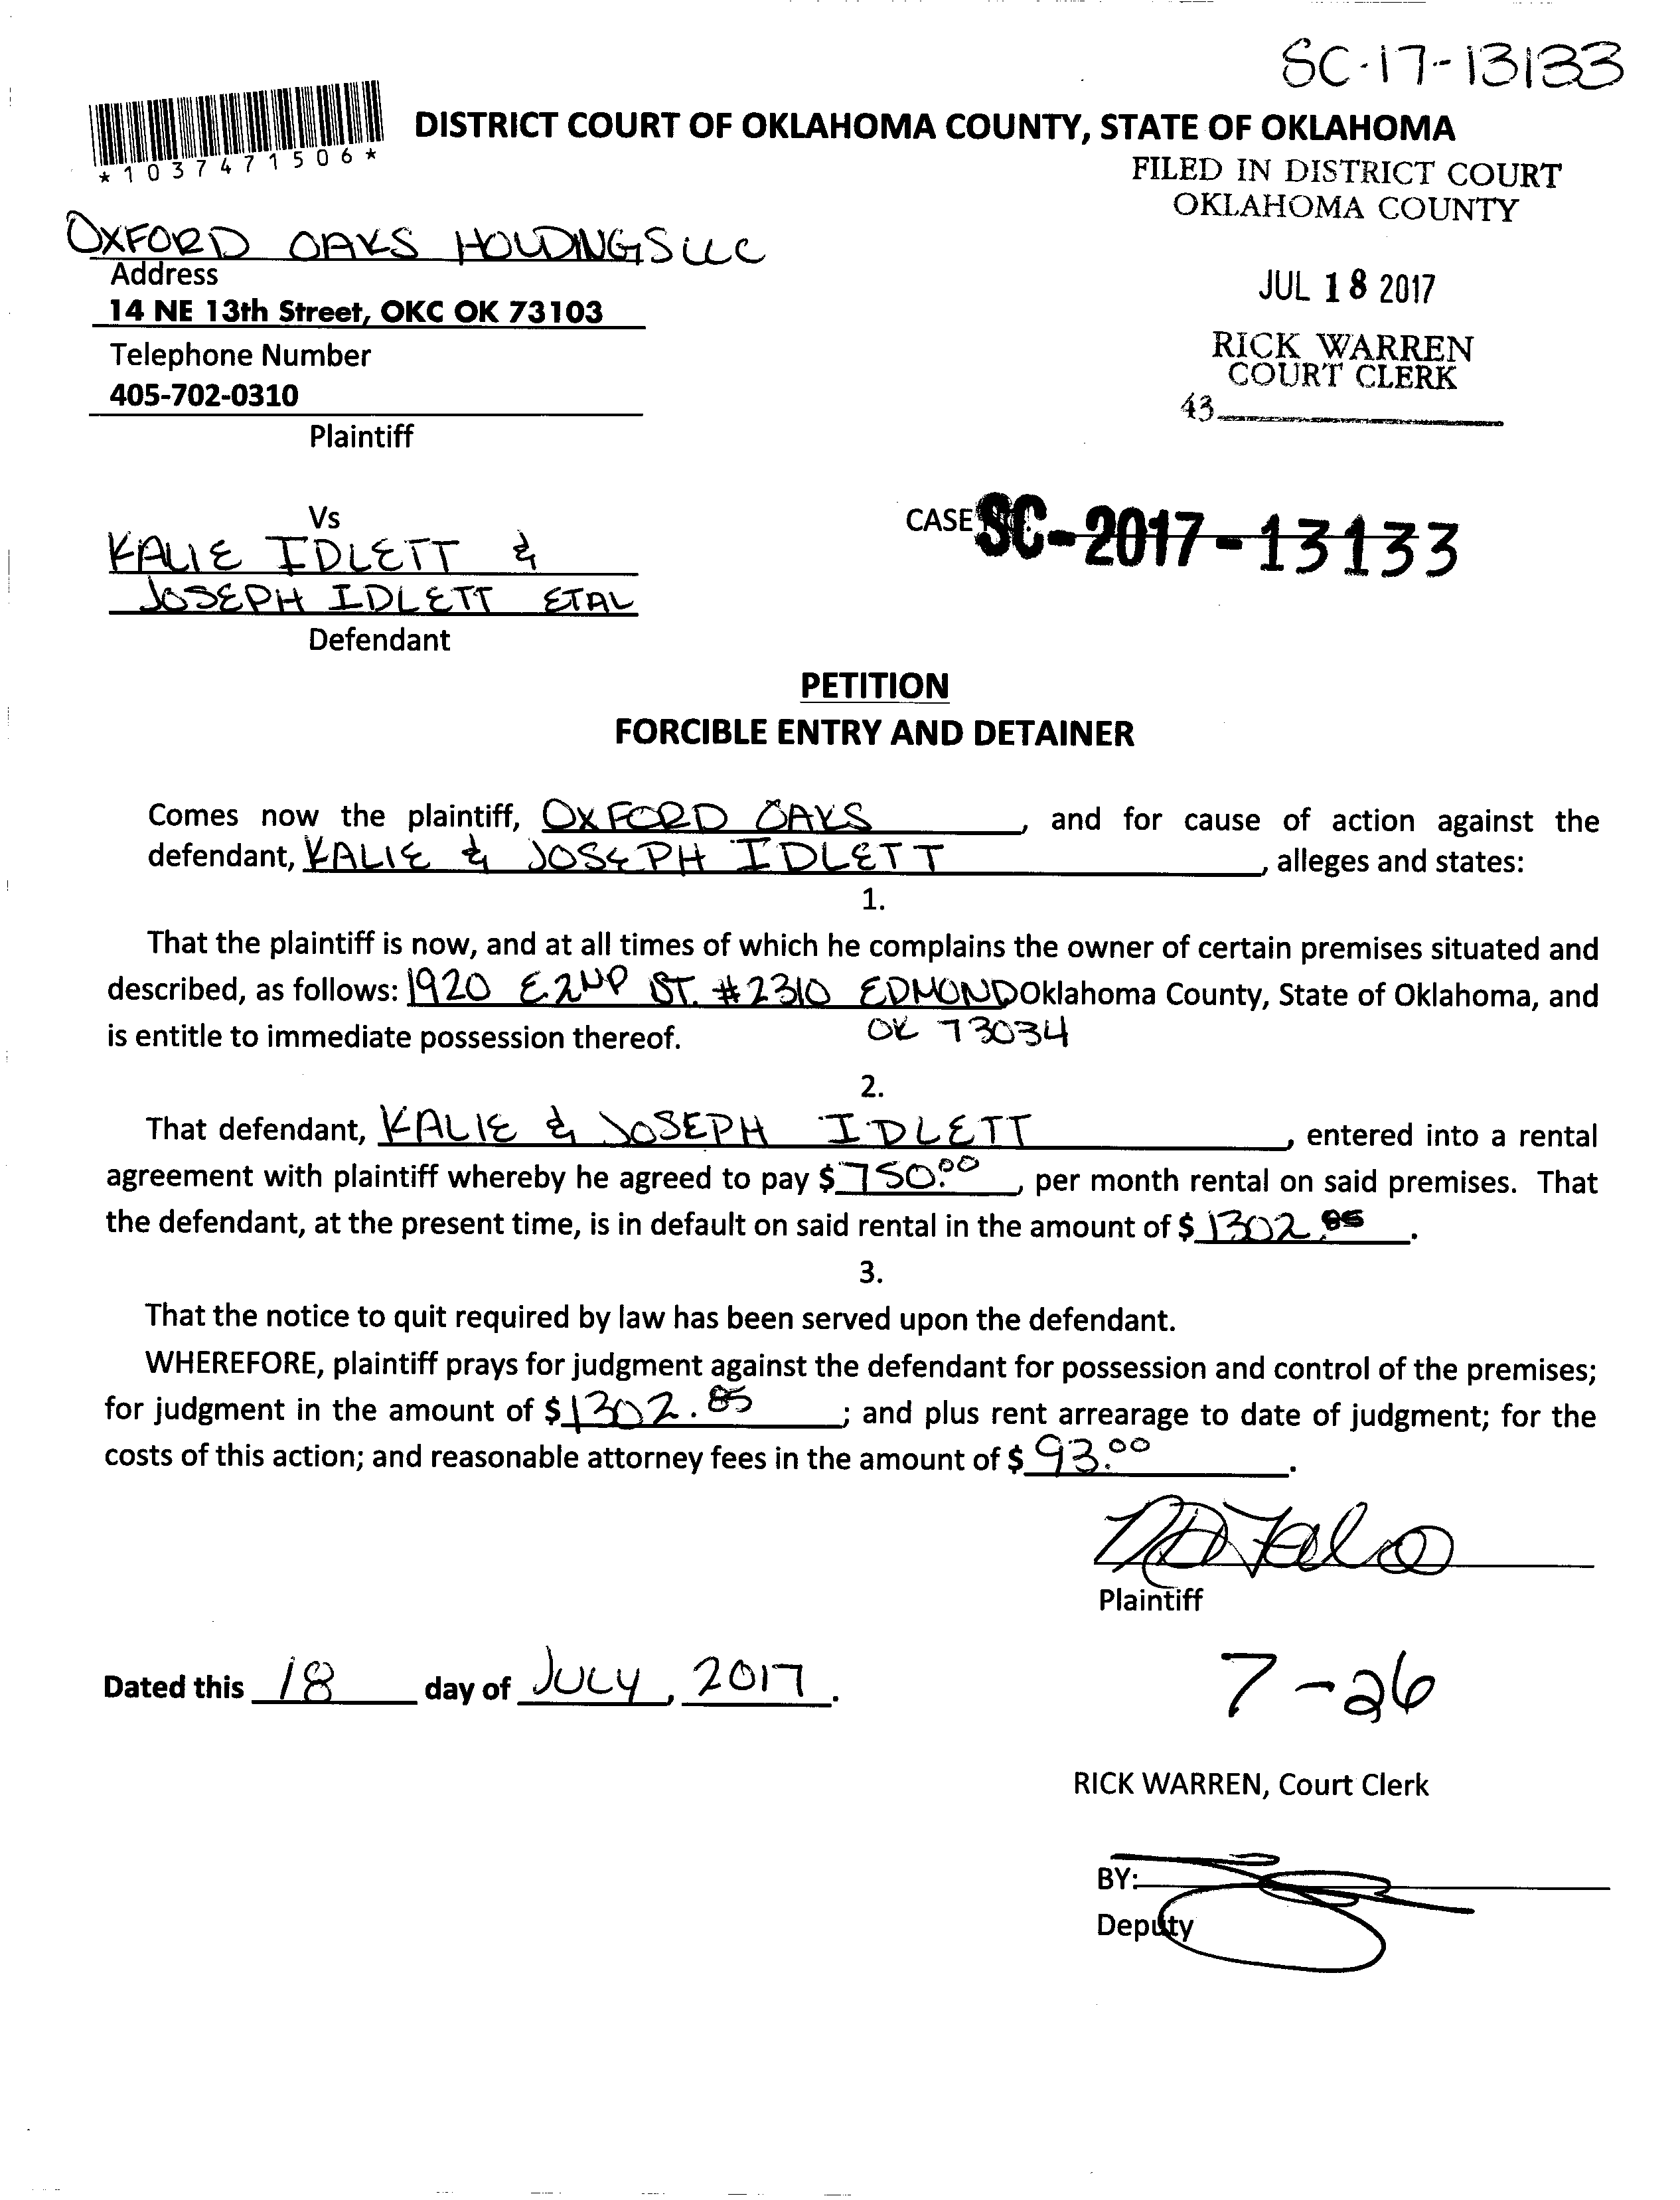 SC-17-13133
*1037471506*
DISTRICT COURT OF OKLAHOMA COUNTY, STATE OF OKLAHOMA
FILED IN DISTRICT COURT
OKLAHOMA COUNTY
OXFORD OAKS HOLDINGS LLC
Address
14 NE 13th Street, OKC OK 73103
JUL 18 2017
Telephone Number
405-702-0310
RICK WARREN
COURT CLERK
43
Plaintiff
Vs
CASE SC-2017-13133
KALIE IDLETT &
JOSEPH IDLETT ETAL
Defendant
PETITION
FORCIBLE ENTRY AND DETAINER
Comes now the plaintiff, OXFORD OAKS, and for cause of action against the
defendant, KALIE & JOSEPH IDLETT, alleges and states:
1.
That the plaintiff is now, and at all times of which he complains the owner of certain premises situated and
described, as follows: 1920 E. 2ND ST. #2310 EDMOND Oklahoma County, State of Oklahoma, and
is entitle to immediate possession thereof. OK 73034
2.
That defendant, KALIE & JOSEPH IDLETT, entered into a rental
agreement with plaintiff whereby he agreed to pay $ 750.00, per month rental on said premises. That
the defendant, at the present time, is in default on said rental in the amount of $ 1302.85.
3.
That the notice to quit required by law has been served upon the defendant.
WHEREFORE, plaintiff prays for judgment against the defendant for possession and control of the premises;
for judgment in the amount of $ 1302.85; and plus rent arrearage to date of judgment; for the
costs of this action; and reasonable attorney fees in the amount of $ 93.00.
Plaintiff
Dated this 18 day of JULY, 2017.
7-26
RICK WARREN, Court Clerk
BY:
Deputy